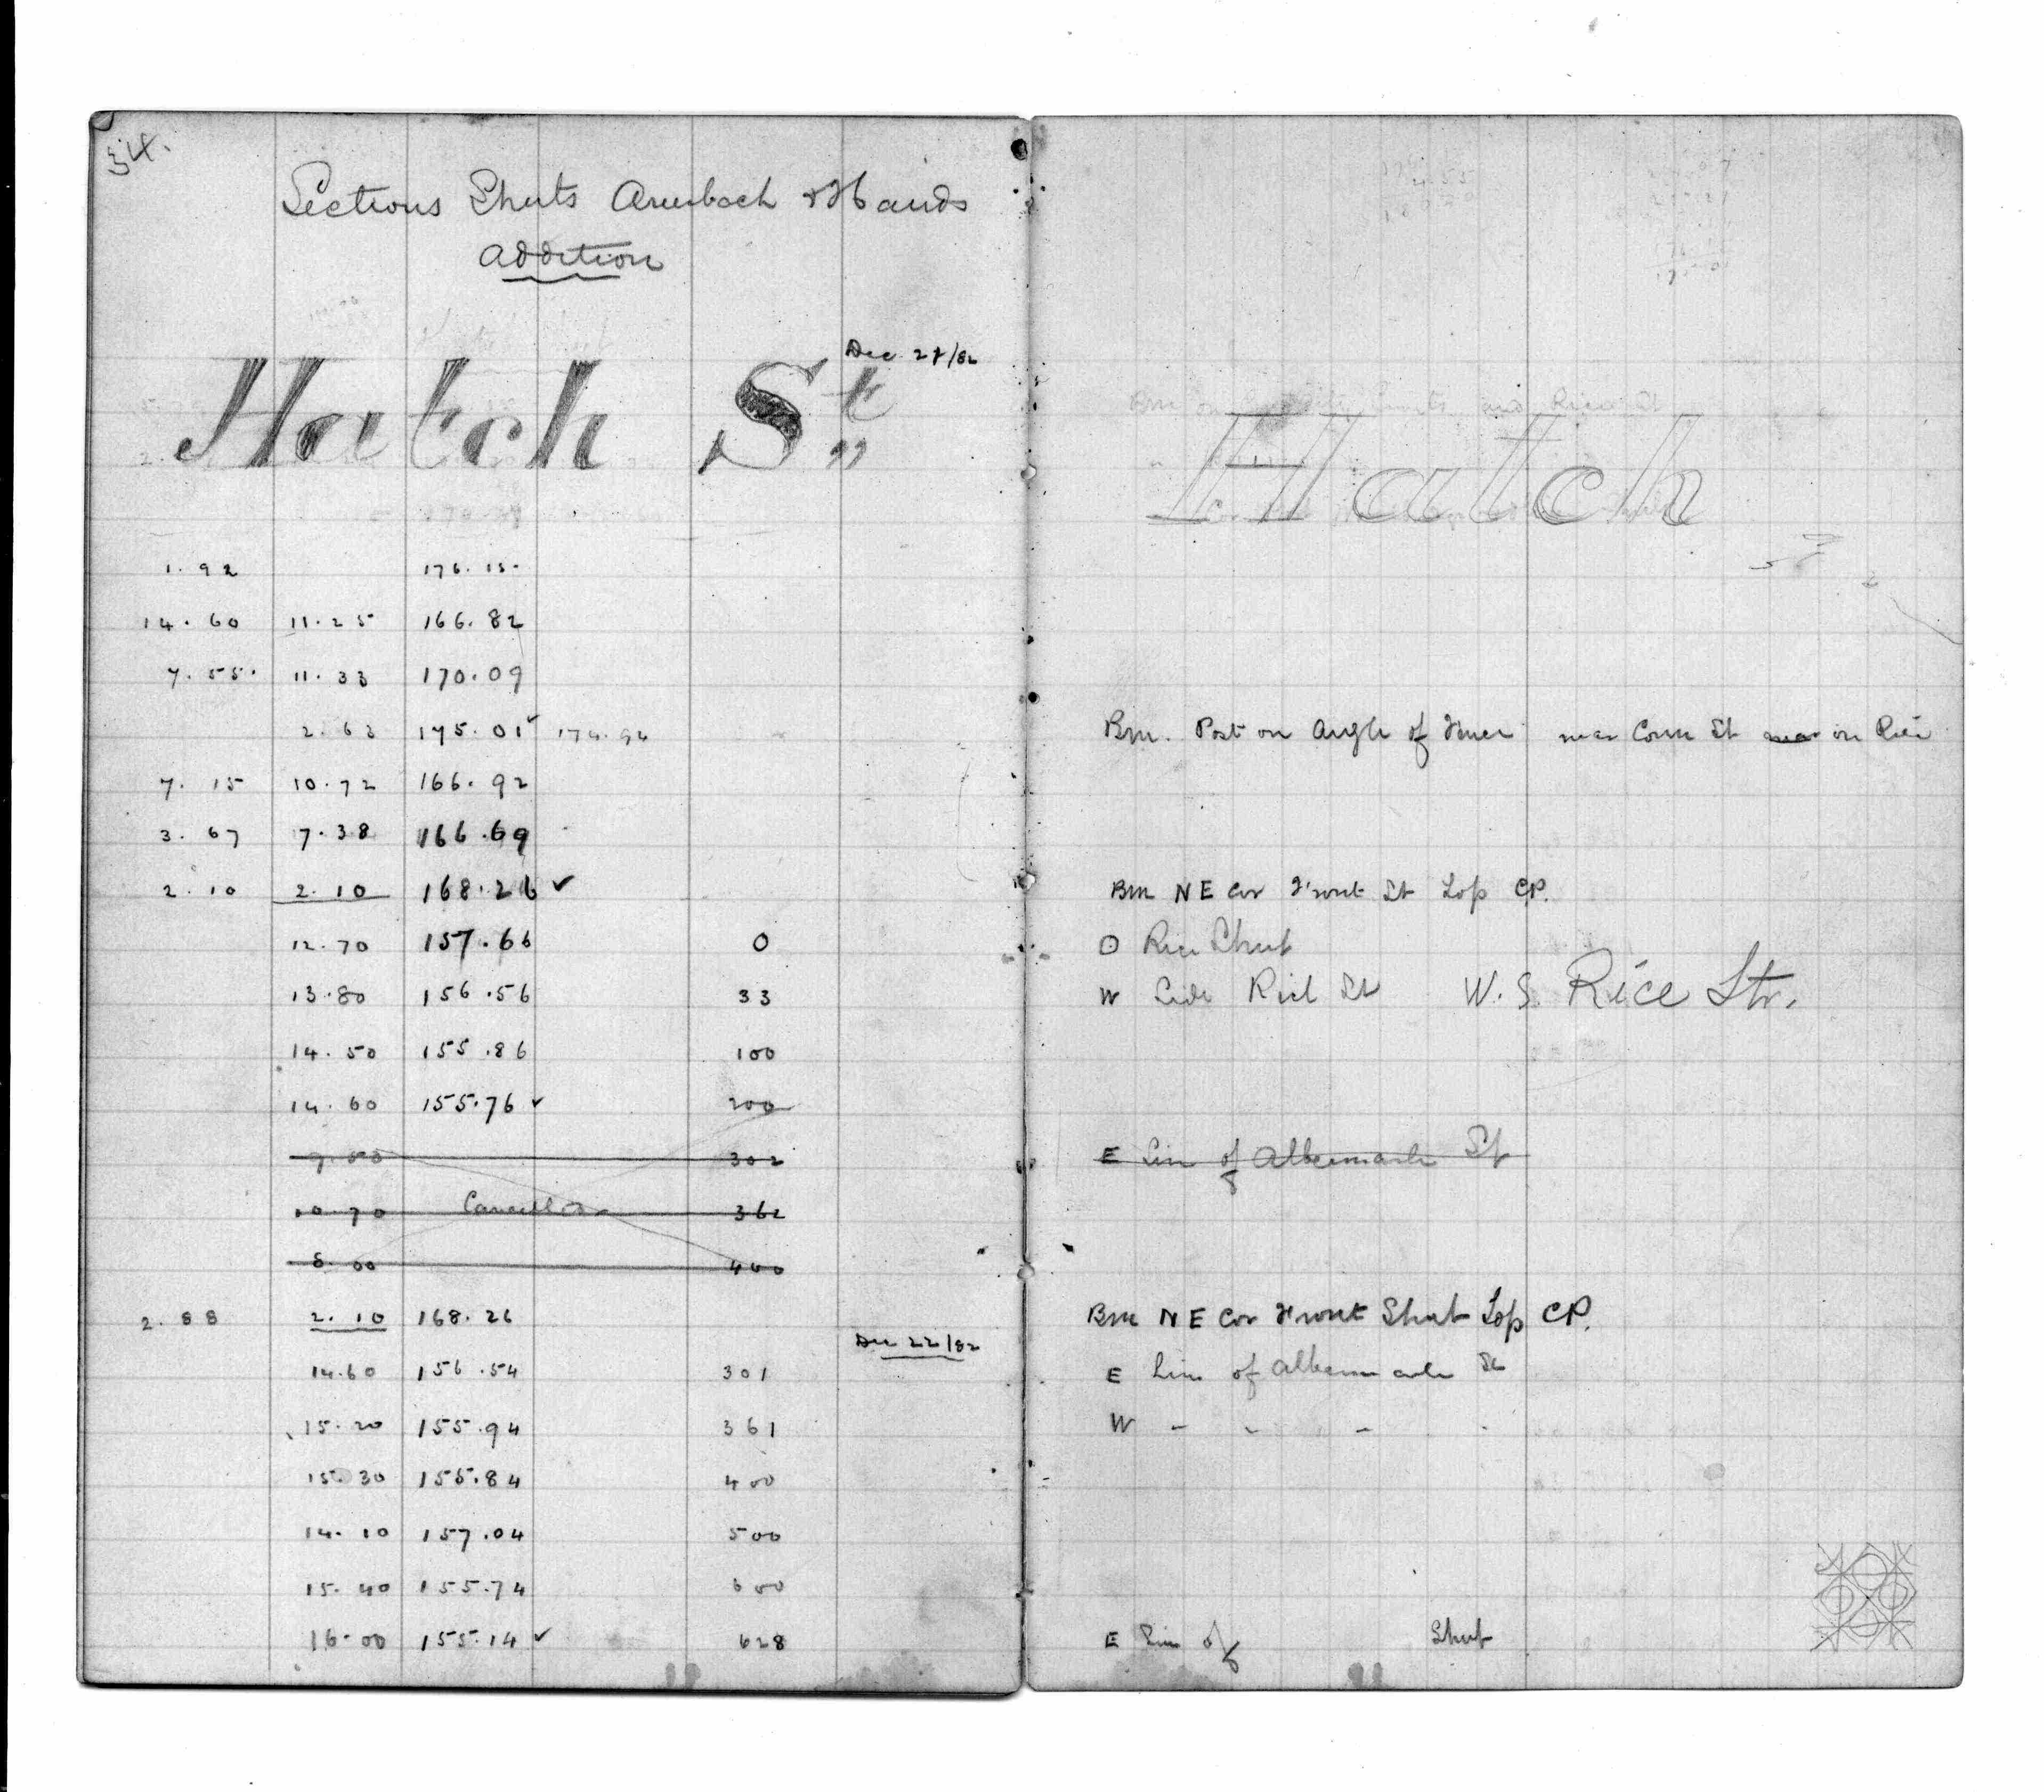 34.
Sections Streets Auerbach & Hands
Addition
Dec 27/82
Hatch St
Hatch
1.92 176.15
14.60 11.25 166.82
7.55 11.33 170.09
2.63 175.01 ✓ 174.94 Bm. Post on Angle of Fence near Corner St near on Rice
7.15 10.72 166.92
3.67 7.38 166.69
2.10 2.10 168.26 ✓ Bm N E Cor Front St Top CP.
12.70 157.66 0 O Rice Street
13.80 156.56 33 W Side Rice St W. S. Rice Str.
14.50 155.86 100
14.60 155.76 ✓ 200
9.50 302 E Line of Albermarle St
10.70 Cancelled 362
8.00 400
2.88 2.10 168.26 Bm N E Cor Front Street Top CP.
Dec 22/82
14.60 156.54 301 E Line of Albermarle St
15.20 155.94 361 W - - - -
15.30 155.84 400
14.10 157.04 500
15.40 155.74 600
16.00 155.14 ✓ 628 E Line of Street